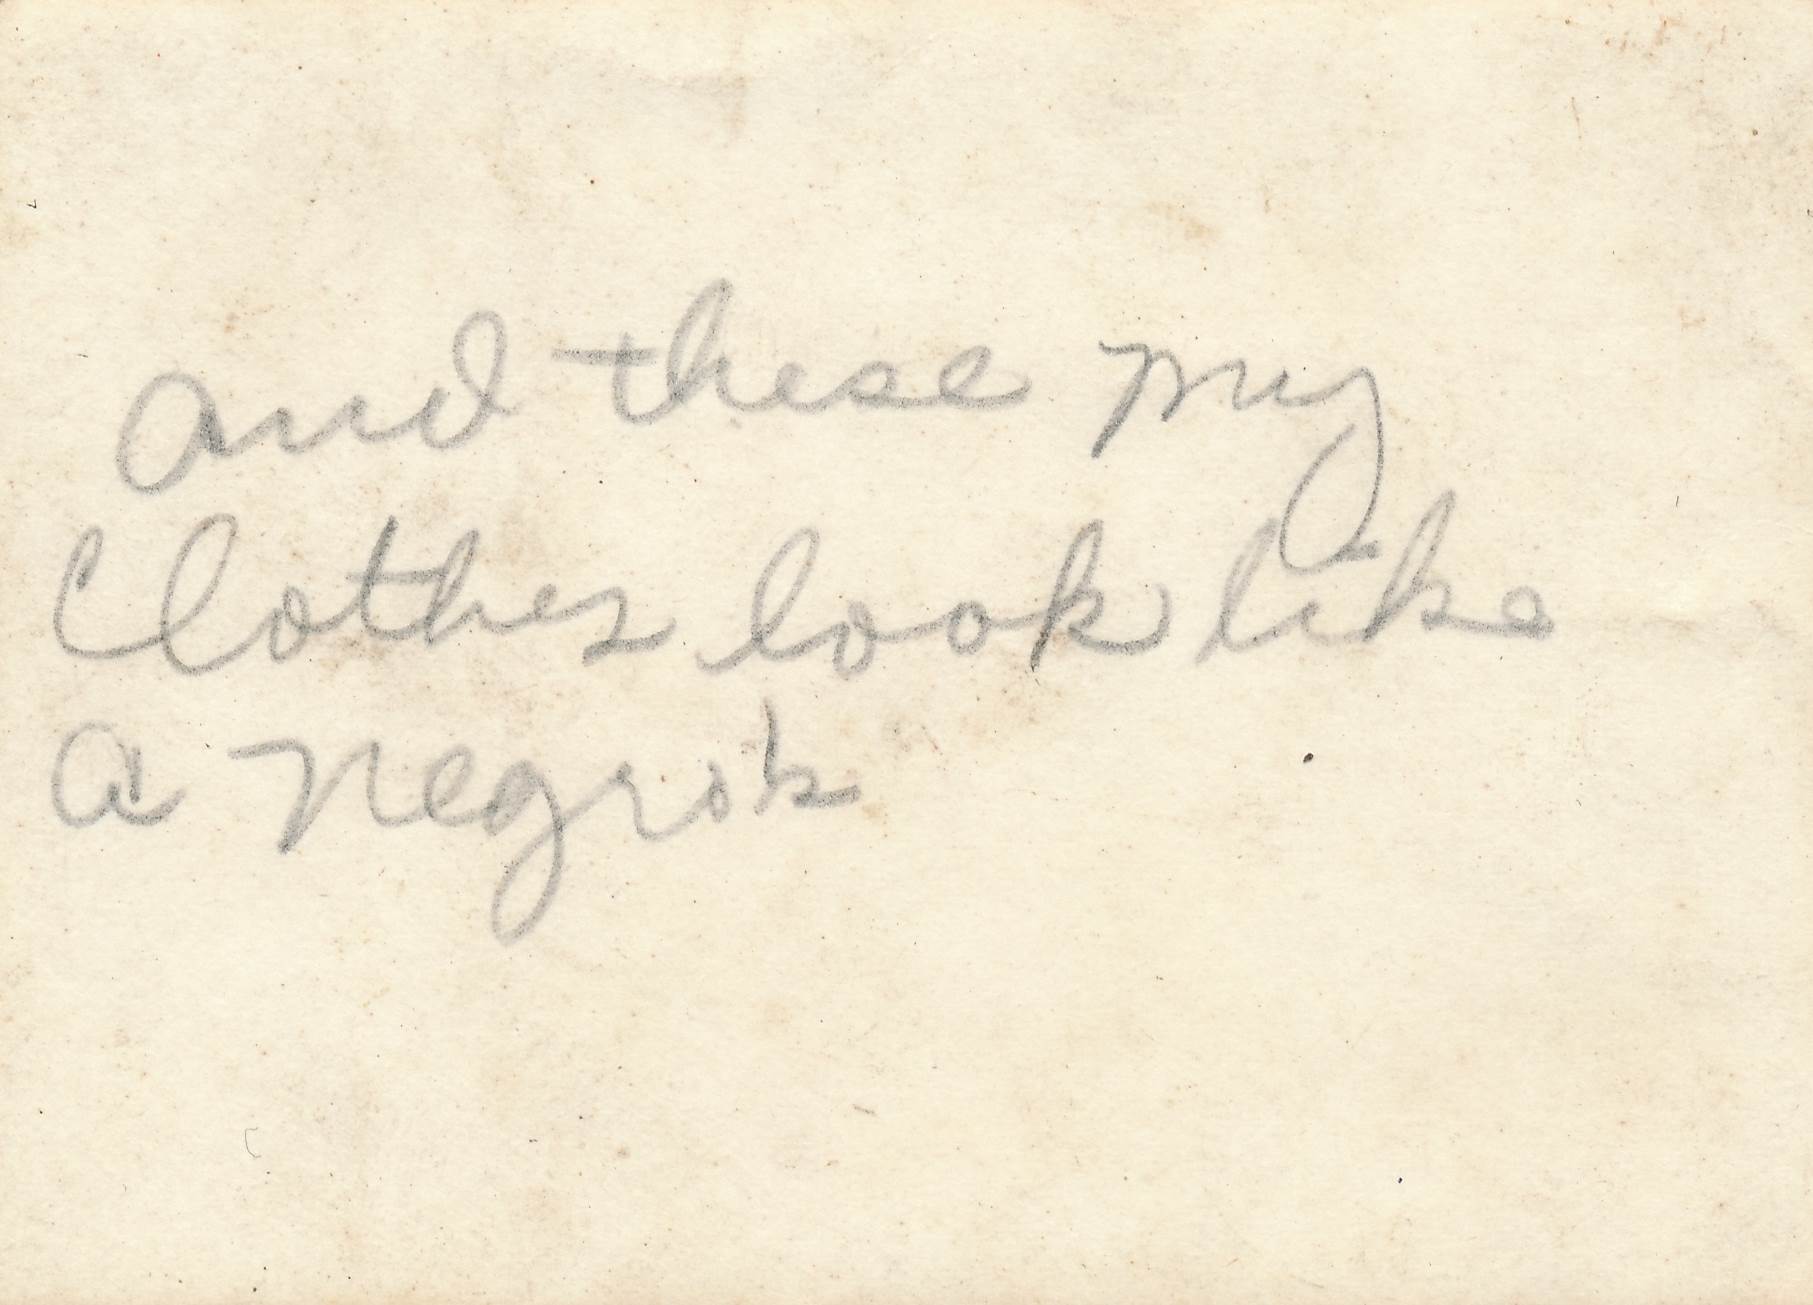 and these my
Clothes look like
a negro's